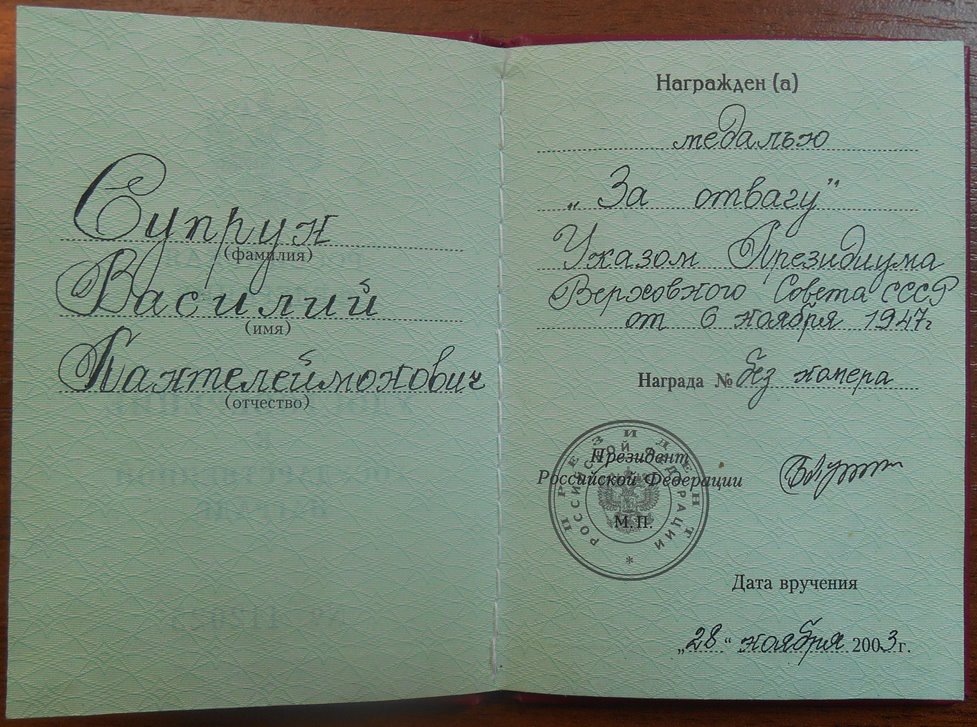 Супрун
(фамилия)
Василий
(имя)
Пантелеймонович
(отчество)
Награжден (а)
медалью
„За отвагу"
Указом Президиума
Верховного Совета СССР
от 6 ноября 1947г
Награда № без номера
Президент
Российской Федерации
М.П.
ПРЕЗИДЕНТ
РОССИЙСКОЙ ФЕДЕРАЦИИ
Дата вручения
„28“ ноября 2003г.